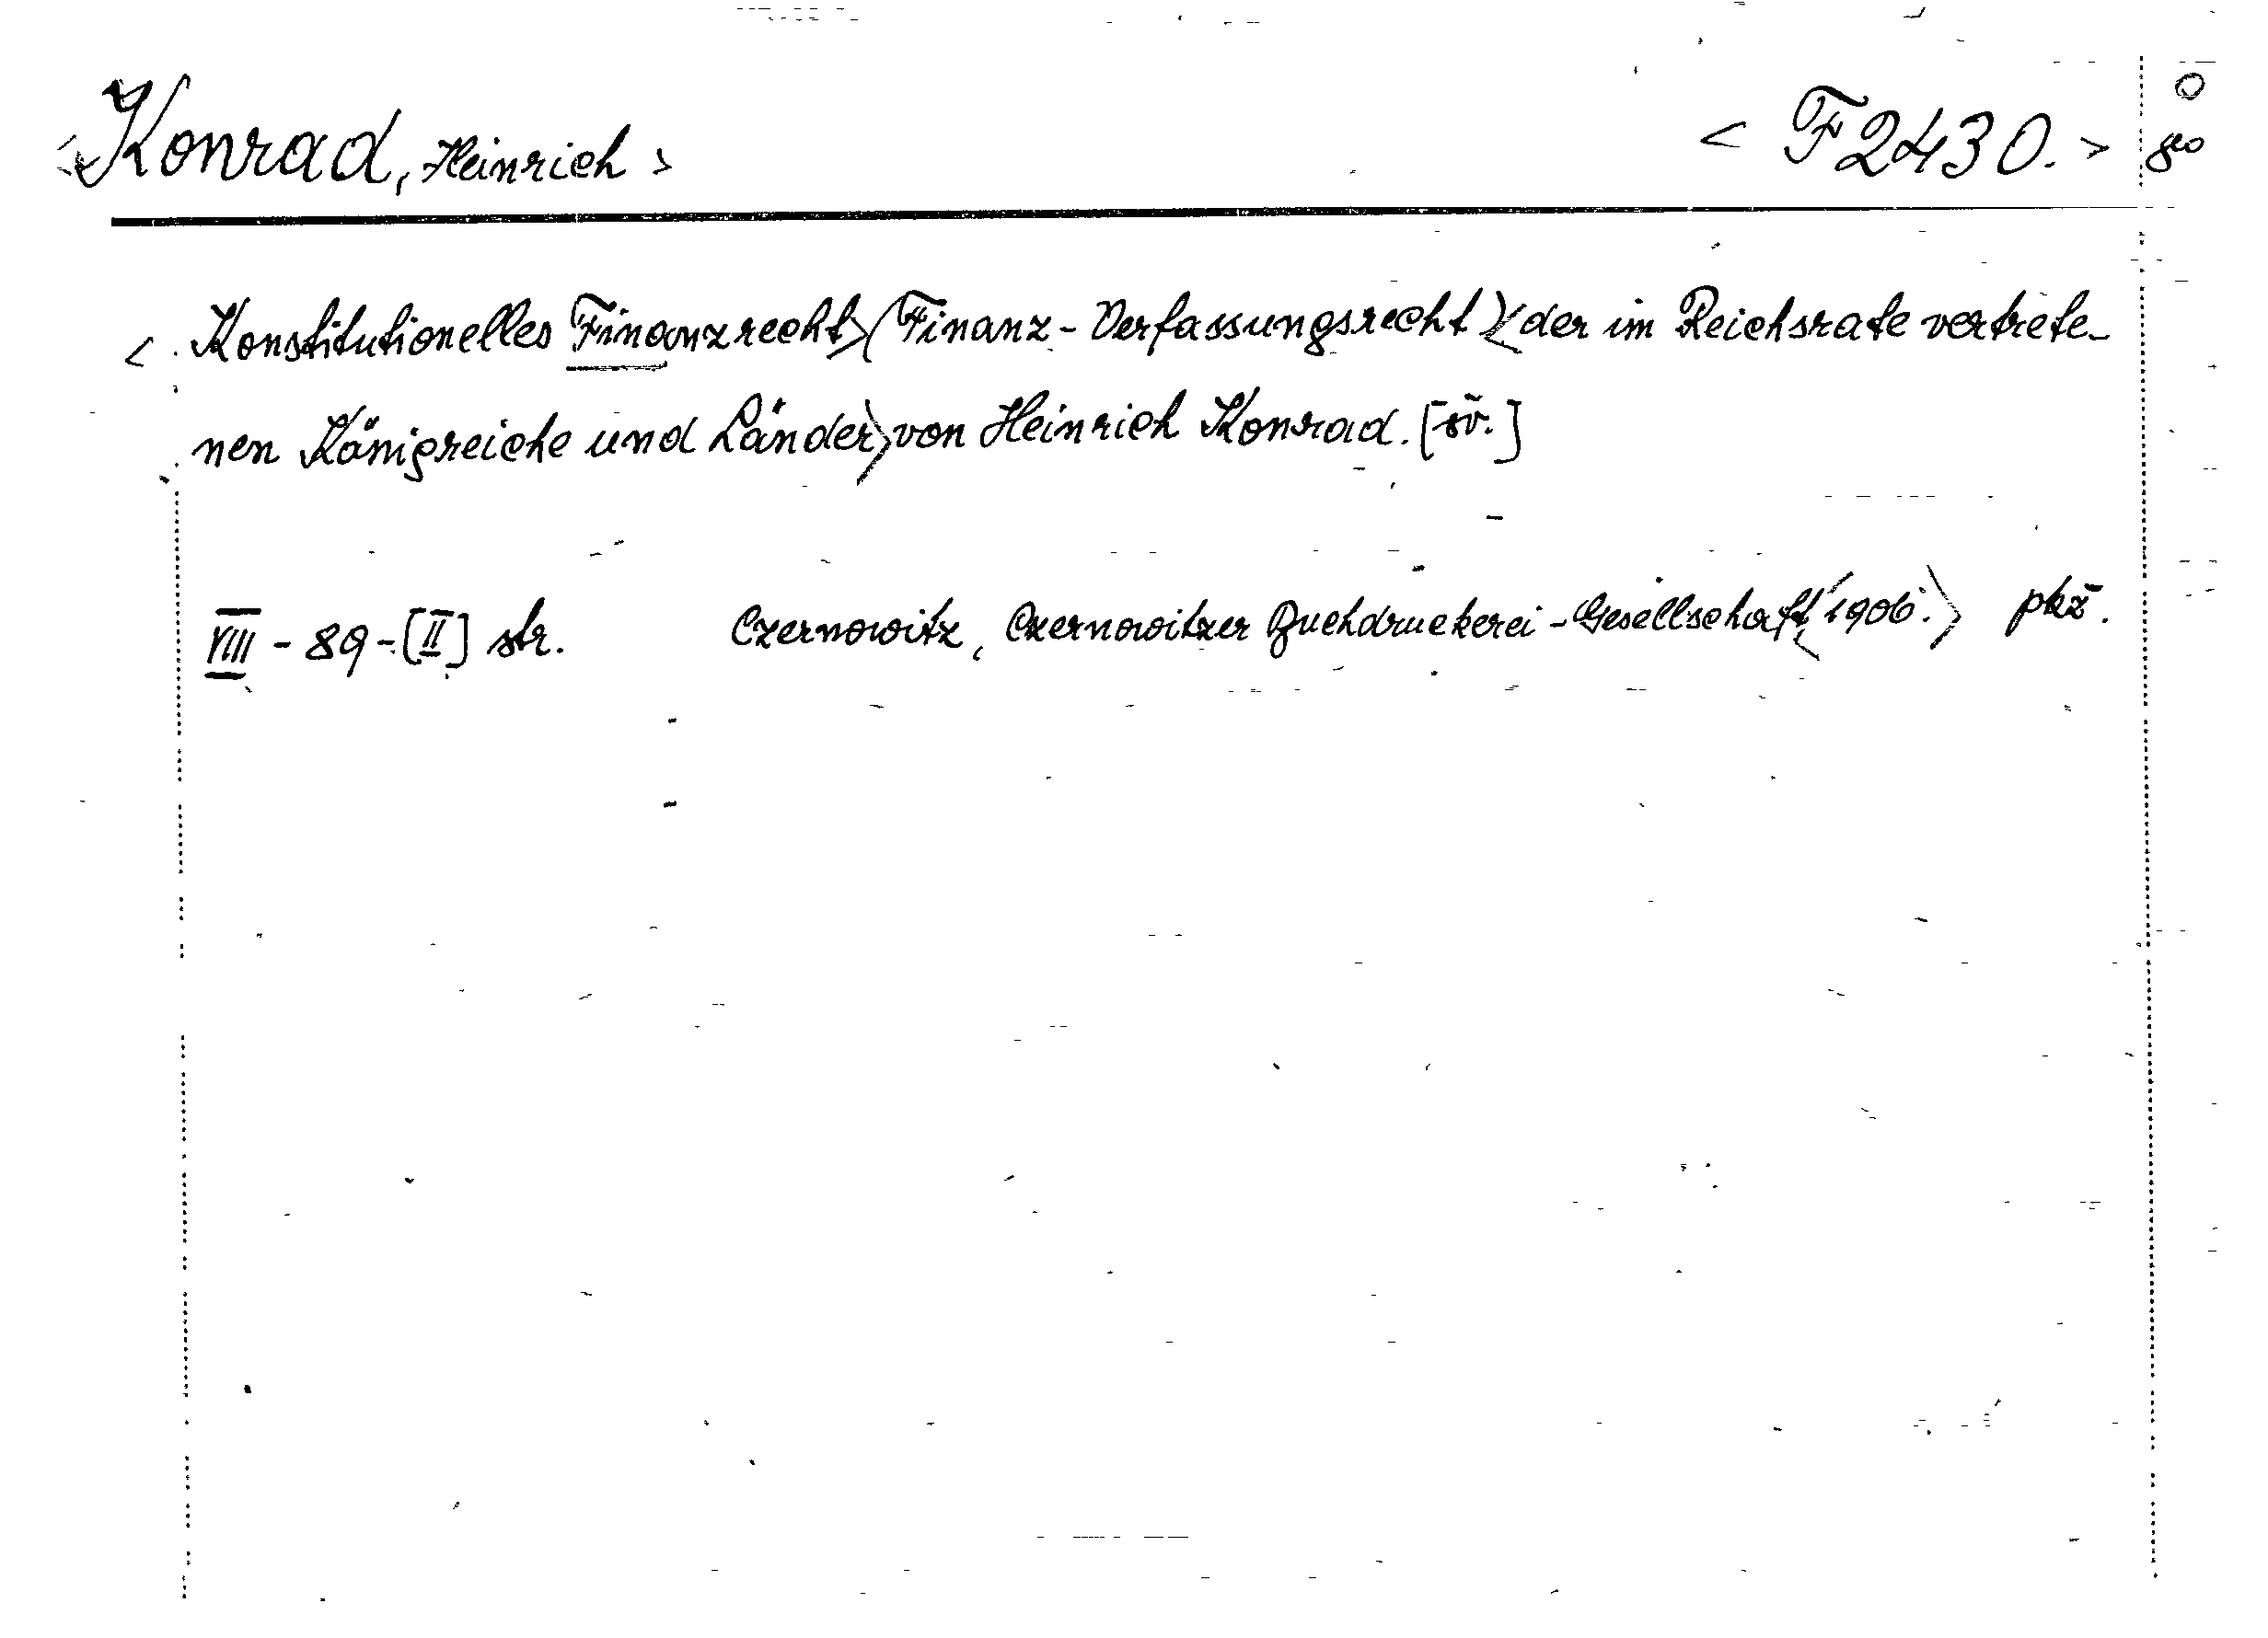 <Konrad, Heinrich> <F2430.> O
geo
<Konstitutionelles Finanzrecht> (Finanz-Verfassungsrecht) <der im Reichsrate vertrete-
nen Königreiche und Länder> von Heinrich Konrad. [sv.]
VIII - 89 - [II] str. Czernowitz, Czernowitzer Buchdruckerei-Gesellschaft, <1906.> pkž.